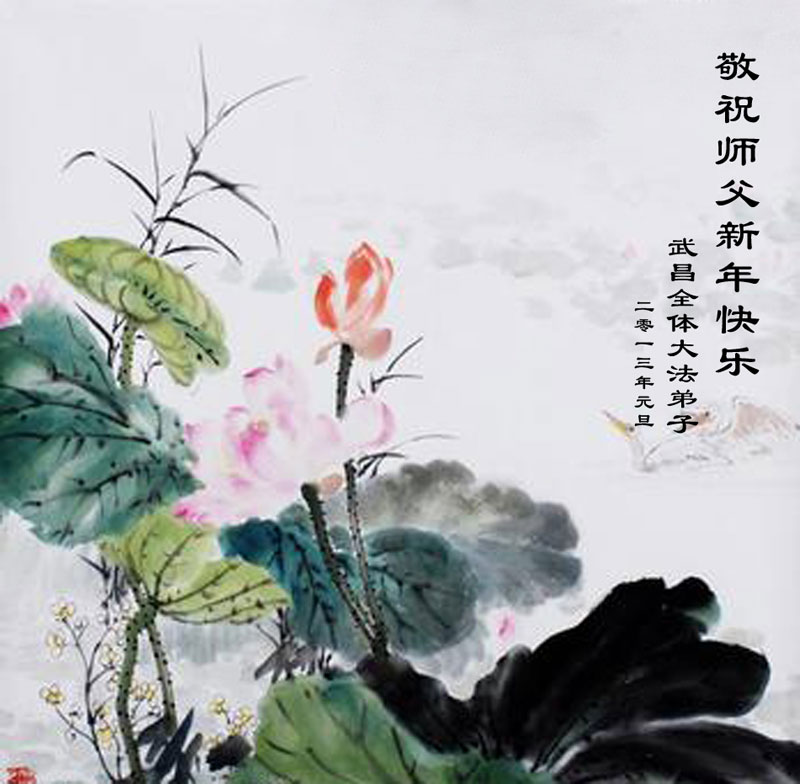 敬祝师父新年快乐
武昌全体大法弟子
二零一三年元旦